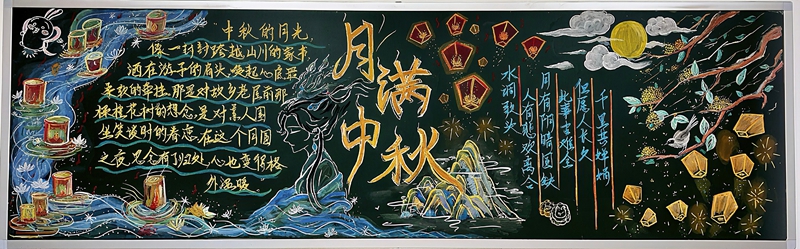 中秋的月光,
像一封封跨越山川的家书
洒在游子的肩头,唤起心底最
柔软的牵挂,那是对故乡老屋前那
棵桂花树的想念,是对亲人围
坐笑谈时的眷恋,在这个月圆
之夜,思念有了归处,心也变得格
外温暖
月满
中秋
水调歌头
人有悲欢离合
月有阴晴圆缺
此事古难全
但愿人长久
千里共婵娟